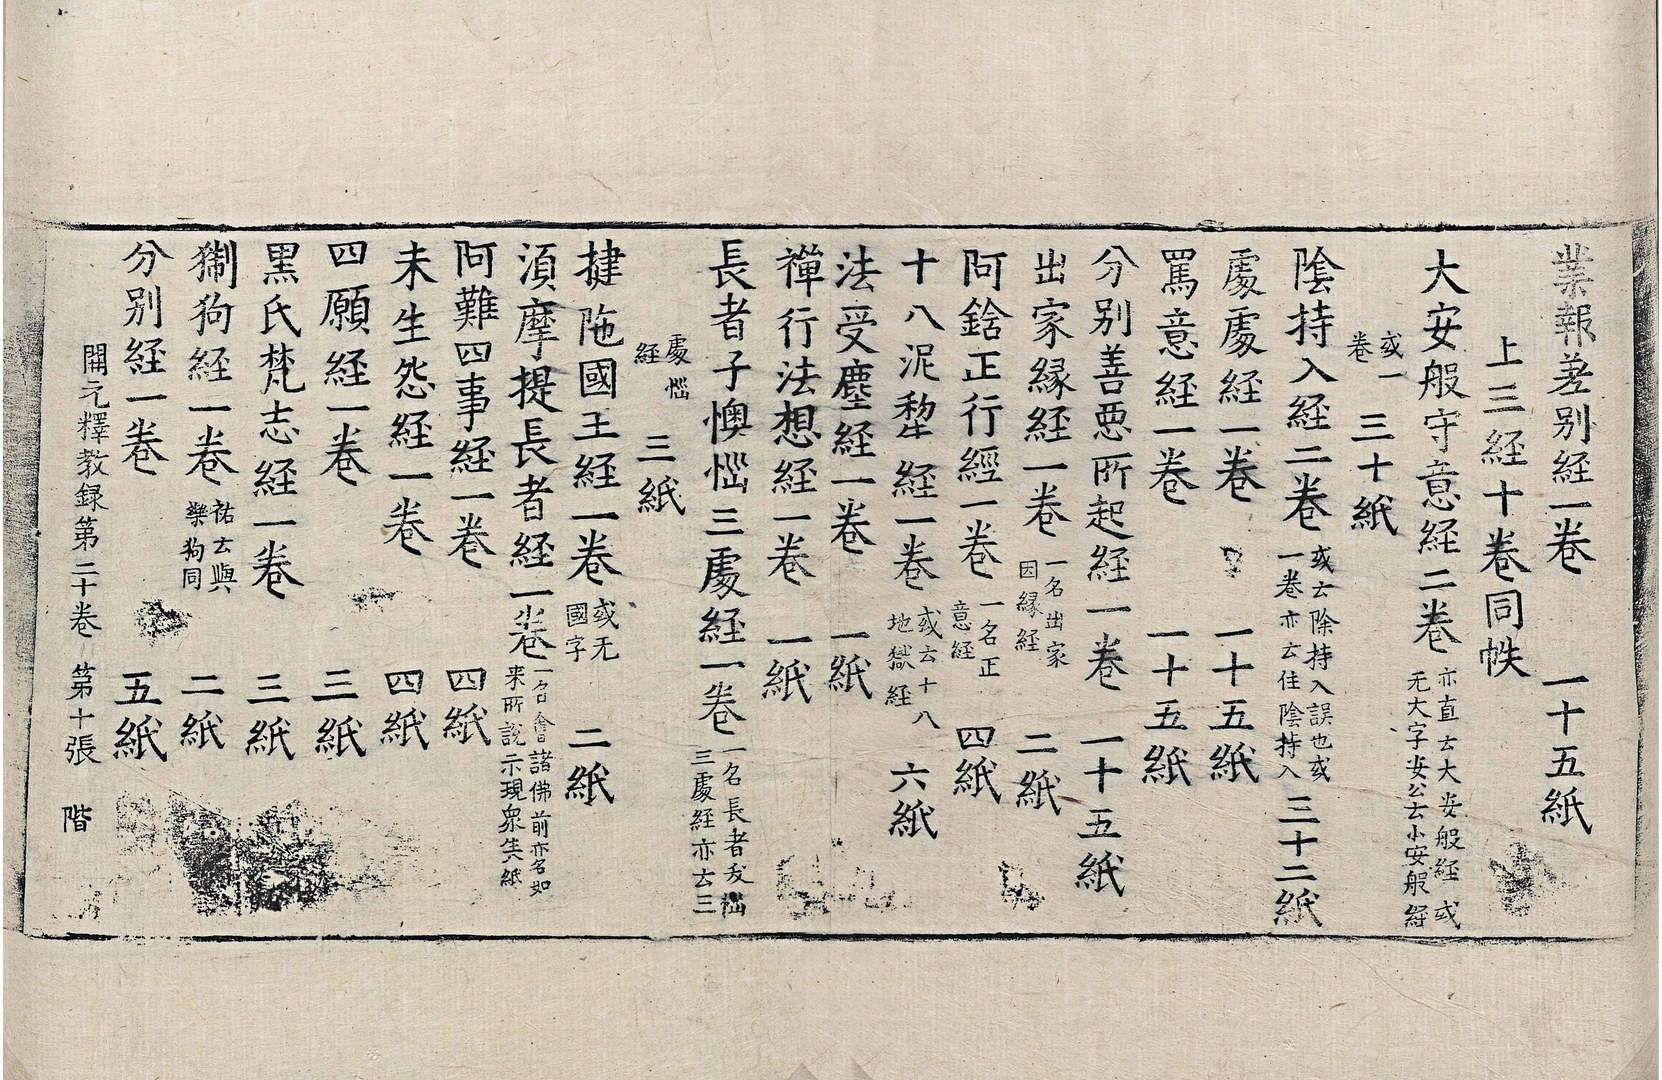 業報差別経一卷 一十五紙
上三経十卷同帙
大安般守意経二卷 亦直云大安般経或
无大字安公云小安般経
或一
卷 三十紙
陰持入経二卷 或云除持入誤也或
一卷亦云住陰持入 三十二紙
處處経一卷 一十五紙
罵意経一卷 一十五紙
分别善惡所起経一卷 一十五紙
出家縁経一卷 一名出家
因縁経 二紙
阿鋡正行經一卷 一名正
意経 四紙
十八泥犂経一卷 或云十八
地獄経 六紙
法受塵経一卷 一紙
禪行法想経一卷 一紙
長者子懊惱三處経一卷 一名長者夭惱
三處経亦云三
處惱
経 三紙
揵陁國王経一卷 或无
國字 二紙
湏摩提長者経一卷 一名會諸佛前亦名如
来所說示現衆生 八紙
阿難四事経一卷 四紙
未生怨経一卷 四紙
四願経一卷 三紙
黑氏梵志経一卷 三紙
猘狗経一卷 祐云與
㹱狗同 二紙
分别経一卷 五紙
開元釋教録第二十卷 第十張 階